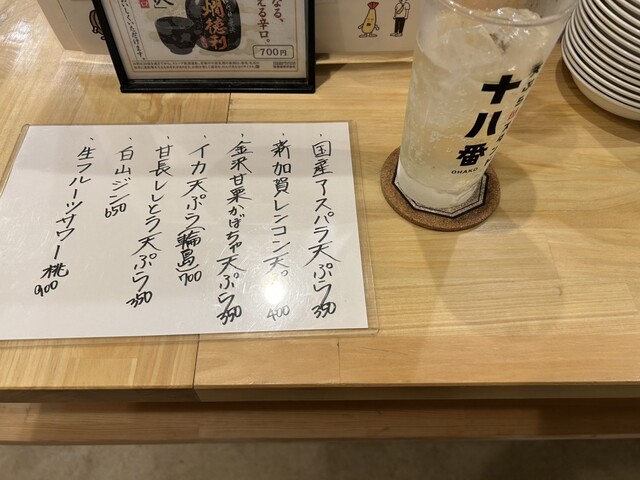 ・国産アスパラ天ぷら 350
・新加賀レンコン天ぷ 400
・金沢甘栗かぼちゃ天ぷら 350
・イカ天ぷら(輪島) 700
・甘長ししとう天ぷら 350
・白山ジン 650
・生フルーツサワー桃 900
なる、
える辛口。
700円
十八番
OHAKO